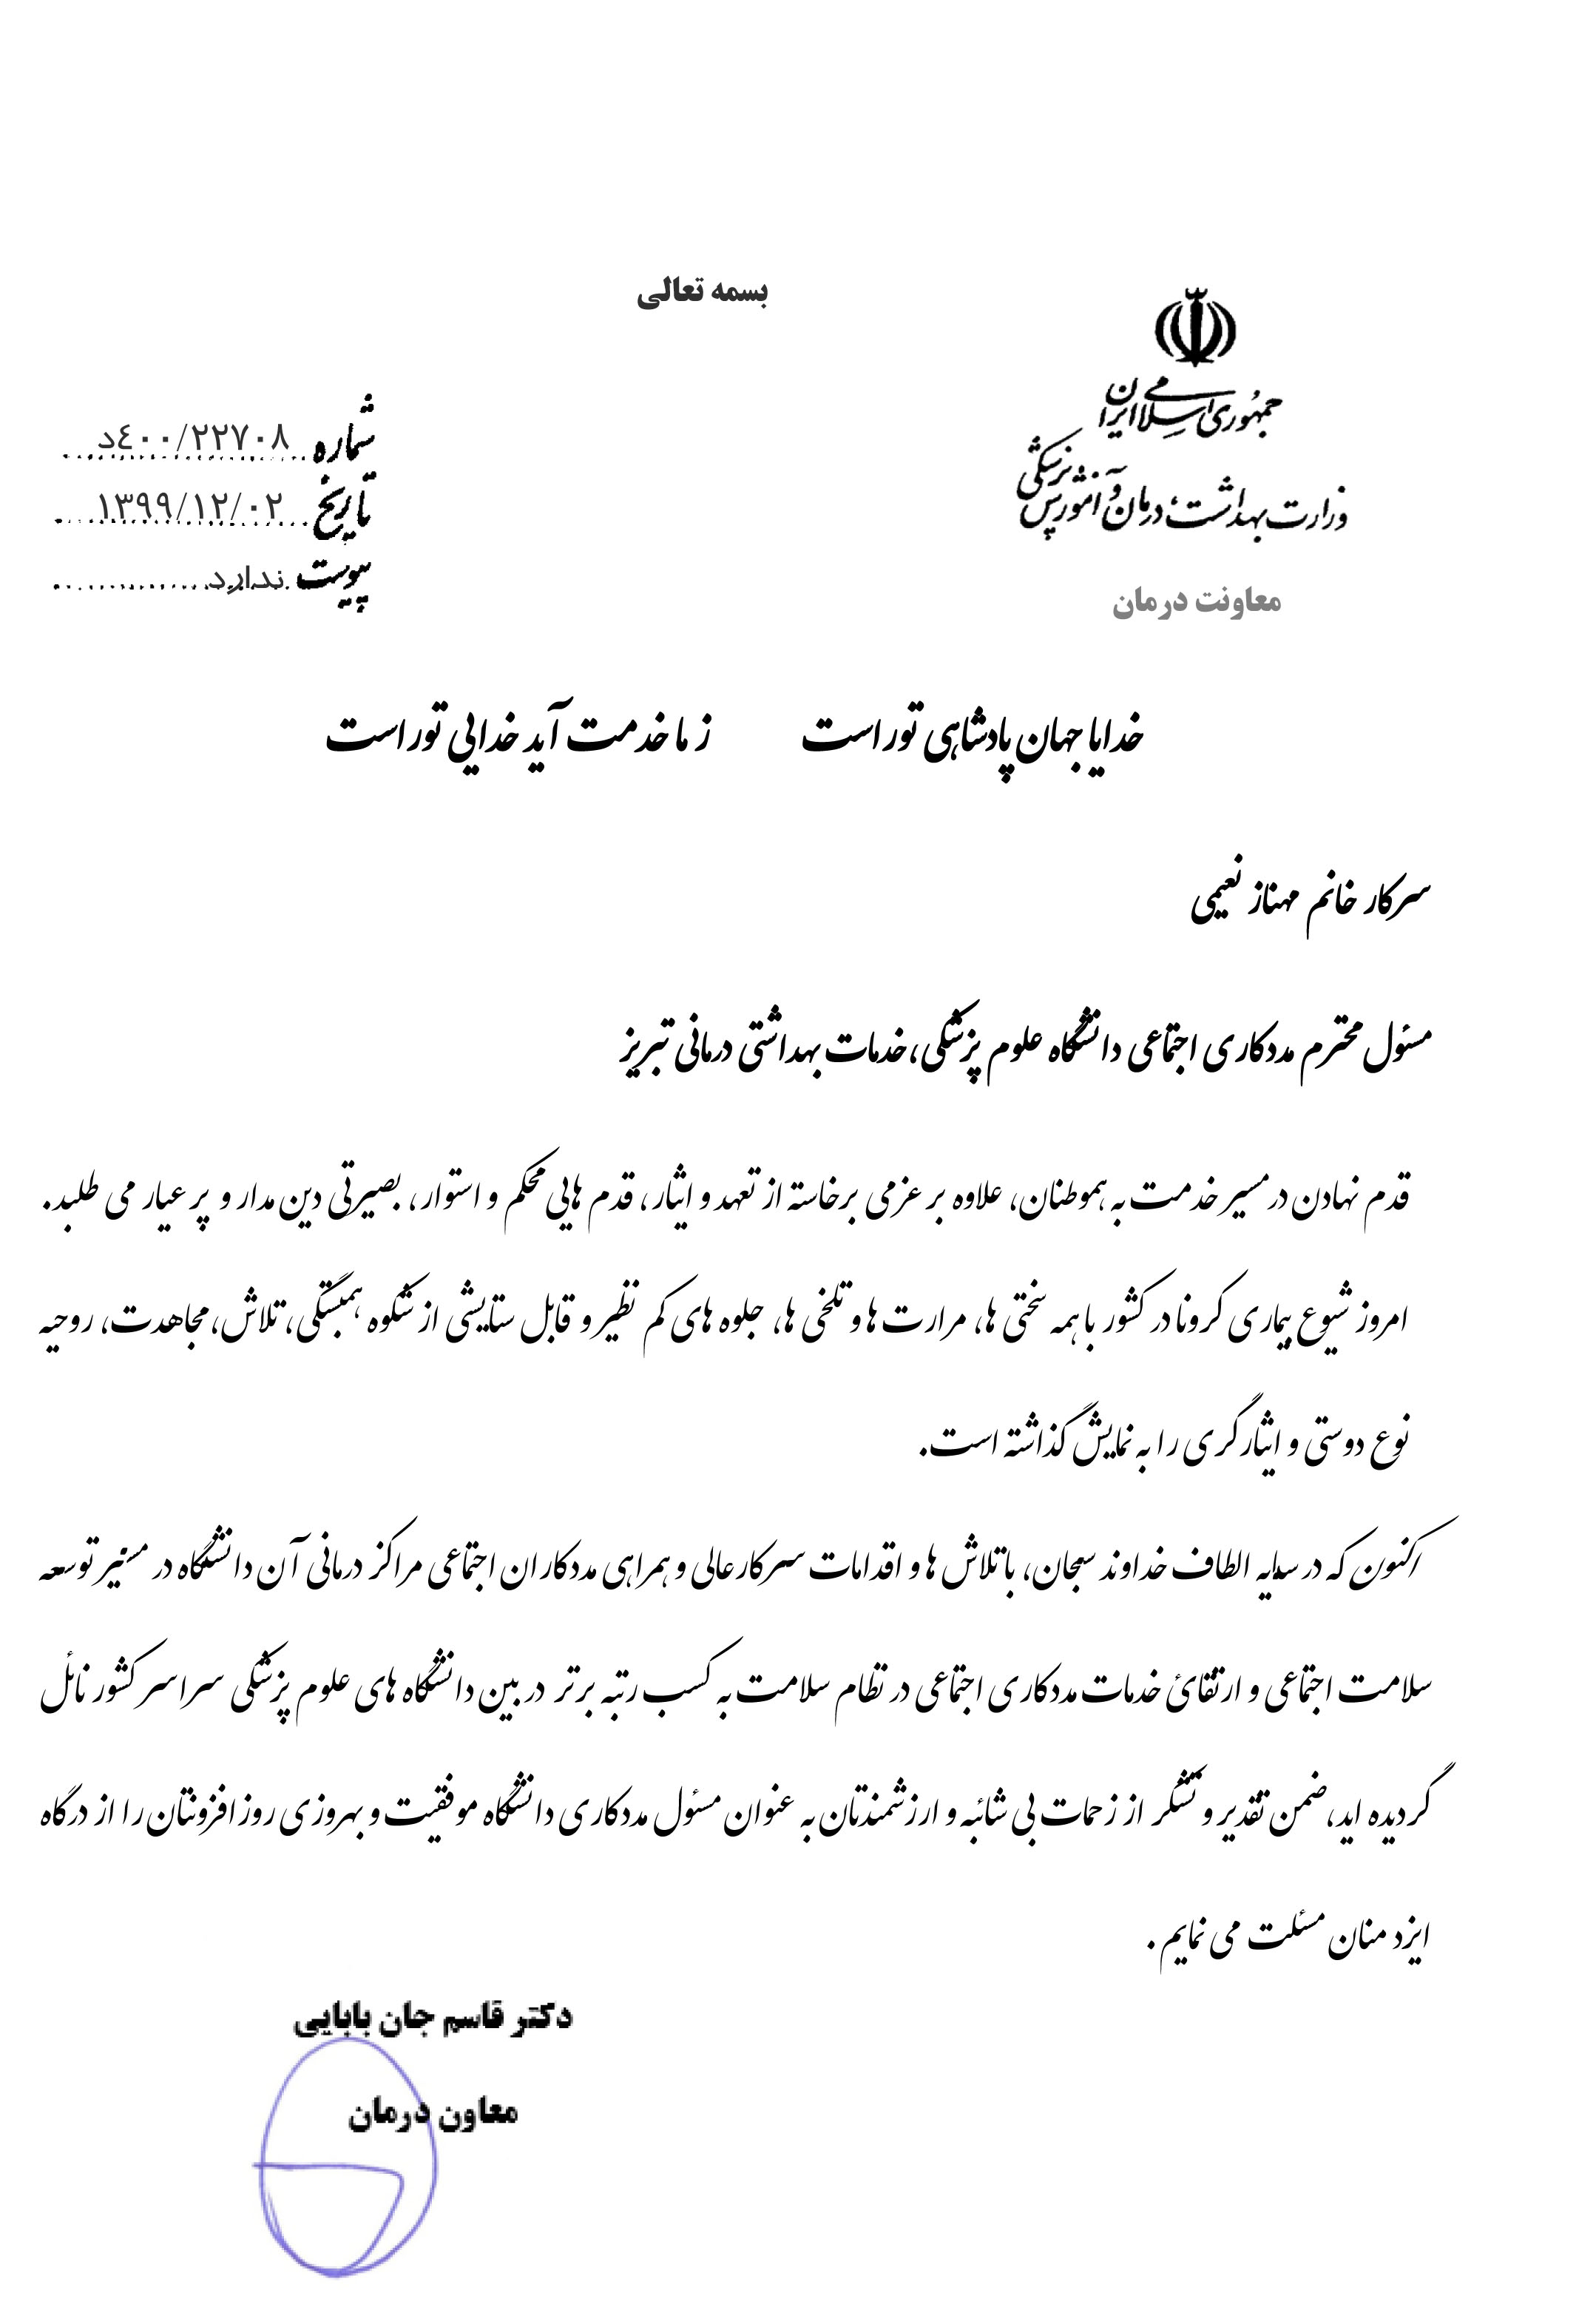 بسمه تعالی
جمهوری اسلامی ایران
وزارت بهداشت، درمان و آموزش پزشکی
معاونت درمان
شماره ٤٠٠/٢٢٧٠٨د
تاریخ ١٣٩٩/١٢/٠٢
پیوست ندارد
خدایا جهان پادشاهی تو راست ز ما خدمت آید خدایی تو راست
سرکار خانم مهناز نعیمی
مسئول محترم مددکاری اجتماعی دانشگاه علوم پزشکی، خدمات بهداشتی درمانی تبریز
قدم نهادن در مسیر خدمت به هموطنان، علاوه بر عزمی برخاسته از تعهد و ایثار، قدم هایی محکم و استوار، بصیرتی دین مدار و پر عیار می طلبد.
امروز شیوع بیماری کرونا در کشور با همه سختی ها، مرارت ها و تلخی ها، جلوه های کم نظیر و قابل ستایشی از شکوه همبستگی، تلاش، مجاهدت، روحیه
نوع دوستی و ایثارگری را به نمایش گذاشته است.
اکنون که در سایه الطاف خداوند سبحان، با تلاش ها و اقدامات سرکار عالی و همراهی مددکاران اجتماعی مراکز درمانی آن دانشگاه در مسیر توسعه
سلامت اجتماعی و ارتقائ خدمات مددکاری اجتماعی در نظام سلامت به کسب رتبه برتر در بین دانشگاه های علوم پزشکی سراسر کشور نائل
گردیده اید، ضمن تقدیر و تشکر از زحمات بی شائبه و ارزشمندتان به عنوان مسئول مددکاری دانشگاه موفقیت و بهروزی روز افزونتان را از درگاه
ایزد منان مسئلت می نمایم.
دکتر قاسم جان بابایی
معاون درمان